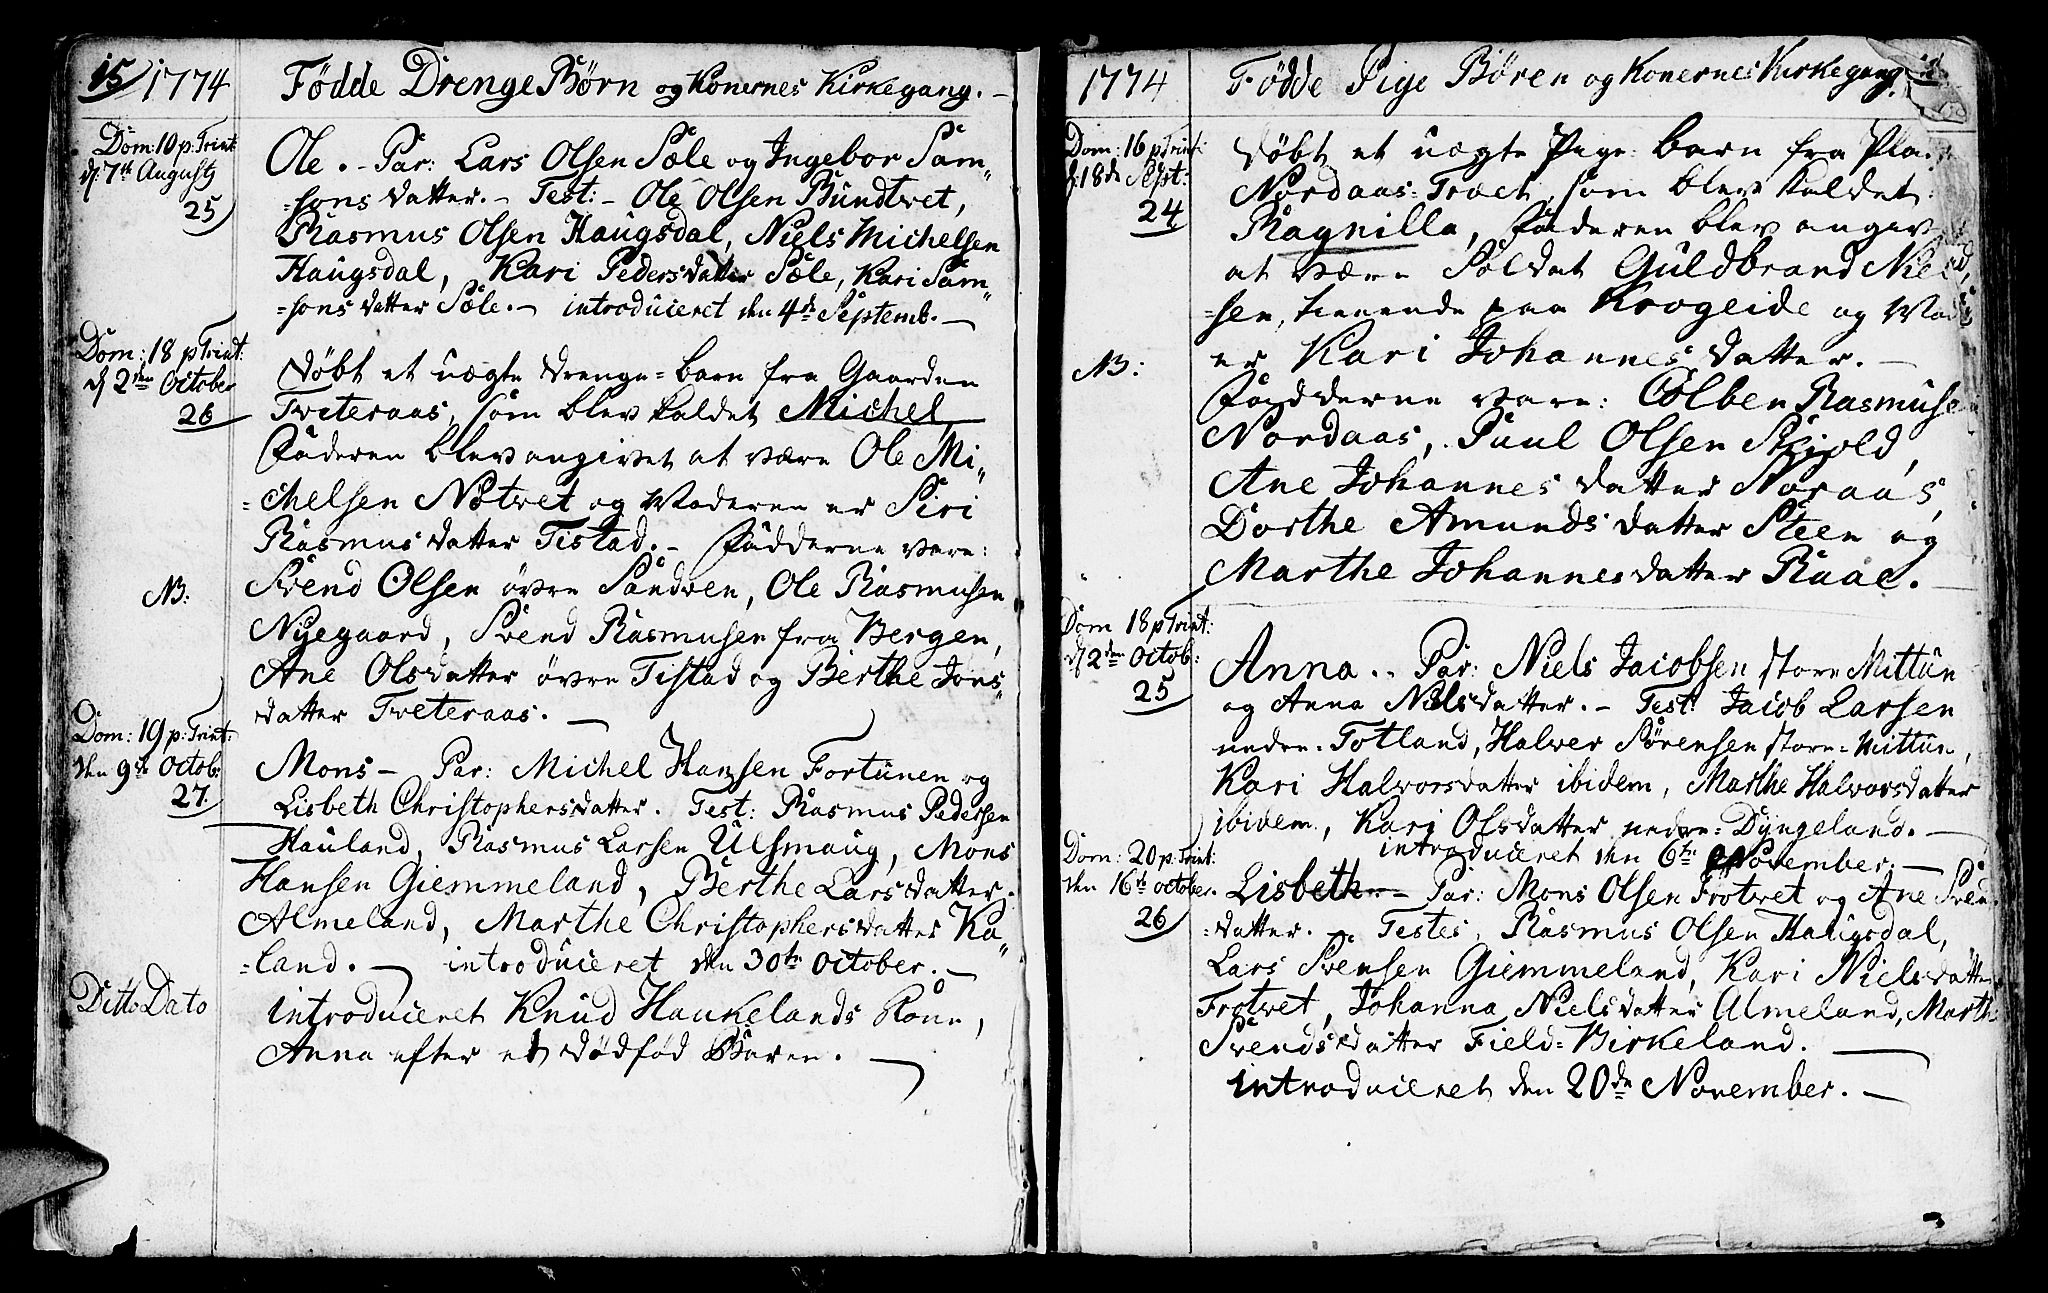 15/ 1774
Födde Drenge Börn og Konernes Kirkegang. -
Dom: 10 p. Trint:
d. 7de Augustj
25
Ole. - Par: Lars Olsen Sæle og Ingebor Sam„
=sons datter. - Test: - Ole Olsen Bundtvet,
Rasmus Olsen Haugsdal, Niels Michelsen
Haugsdal, Kari Pedersdatter Sæle, Kari Sam„
=sons datter Sæle. - introduceret den 4de Septemb. -
Dom: 18 p Trint:
d 2den October
26
Döbt et uægte Drenge=barn fra Gaarden
Tveteraas, som blev kaldet Michel,
Faderen blev angivet at være Ole Mi„
=chelsen Nötvet og Moderen er Siri
Rasmusdatter Tistad. - Fadderne vare:
NB:
Svend Olsen övre Sandven, Ole Rasmusen
Nyegaard, Svend Rasmusen fra Bergen,
Ane Olsdatter övre Tistad og Berthe Jons„
datter Tveteraas. -
Dom: 19 p: Trint:
den 9de Octobr
27.
Mons - Par: Michel Hansen Fortunen og
Lisbeth Christophersdatter. Test: Rasmus Pedersen
Hauland, Rasmus Larsen Ulsmaug, Mons
Hansen Giemmeland, Berthe Larsdatter
Almeland, Marthe Christophersdatter Ka„
=land. - introduceret den 30te October. -
Ditto Dato
introduceret Knud Haukelands Kone,
Anna efter et dödföd Baren. -
1774
Födde Pige Bören og Konernes Kirkegang.
Dom: 16 p Trint:
d: 18de Sept:
24
Döbt et uægte Pige-barn fra
Nordaas=Træet, som blev kaldet
Ragnilla, Faderen blev
at være Soldat Guldbrand
=sen, tienende paa Krogeide og
NB:
er Kari Johannesdatter. -
Fadderne vare: Colben
Nordaas, Puul Olsen Skjold,
Ane Johannesdatter Noraas,
Dorthe Amundsdatter Steen og
Marthe Johannesdatter Raae. -
Dom 18 p Trint:
d 2den Octob:
25
Anna. - Par: Niels Jacobsen store Mittun
og Anna Nielsdatter. - Test: Jacob Larsen
nedre-Totland, Halver Sörensen store=Mittun,
Kari Halvorsdatter ibidem, Marthe Halvorsdatter
ibidem, Kari Olsdatter nedre=Dyngeland. -
introduceret den 6te November. -
Dom: 20 p. Trint:
den 16de October.
26
Lisbeth - Par: Mons Olsen Frotvet og Ane
=datter. - Testes, Rasmus Olsen Haugsdal,
Lars Svensen Giemmeland, Kari Nielsdatter
Frotvet, Johanna Nielsdatter Almeland,
Svendsdatter Field=Birkeland. -
introduceret den 20de November. -